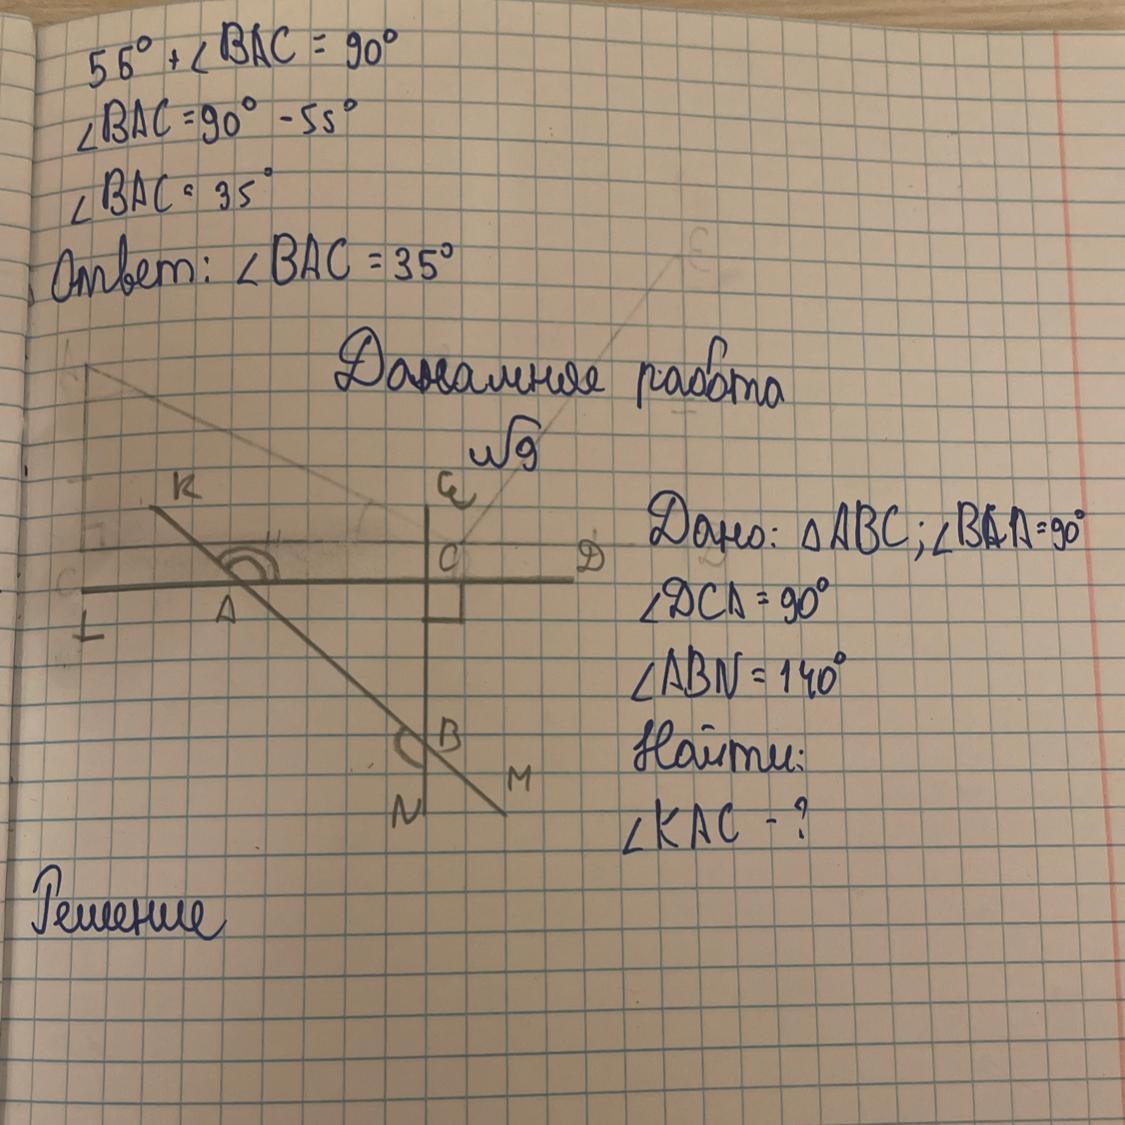 55° + ∠BAC = 90°
∠BAC = 90° - 55°
∠BAC = 35°
Ответ: ∠BAC = 35°
Домашняя работа
№9
K
E
C
D
A
L
B
M
N
Дано: △ABC;
∠DCA = 90°
∠ABN = 140°
Найти:
∠KAC - ?
Решение